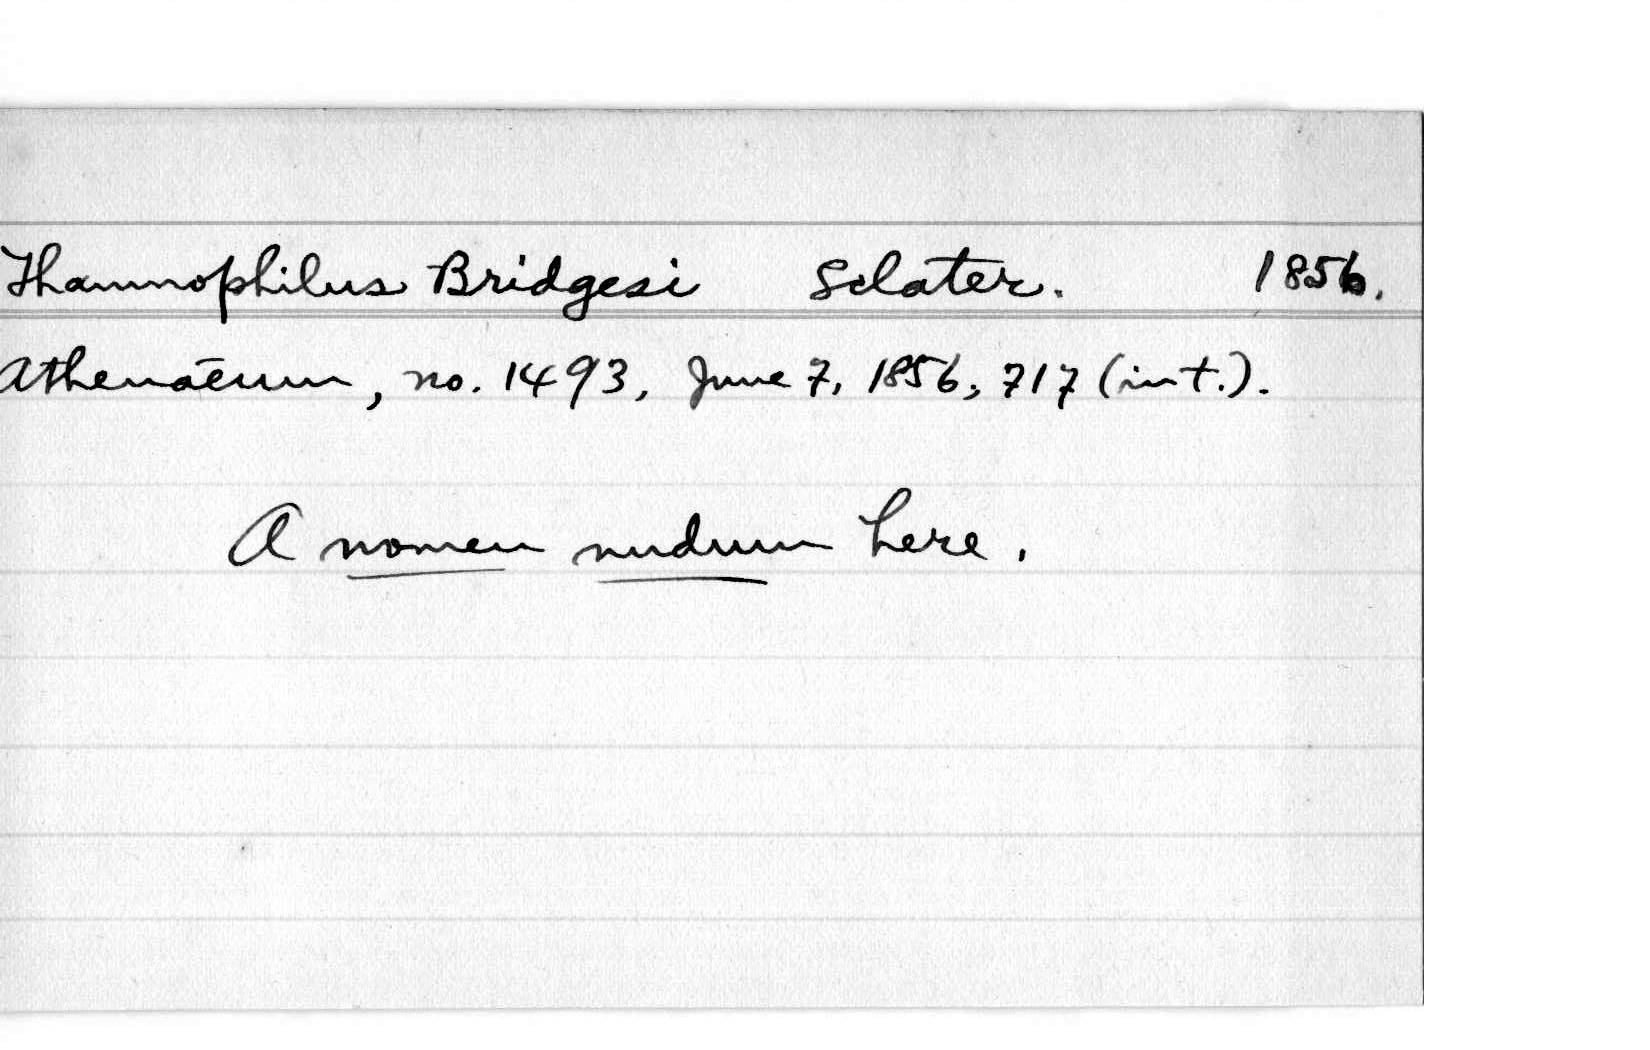 Thamnophilus Bridgesi Sclater. 1856.
Athenaeum, no. 1493, June 7, 1856, 717 (int.).
A nomen nudum here.